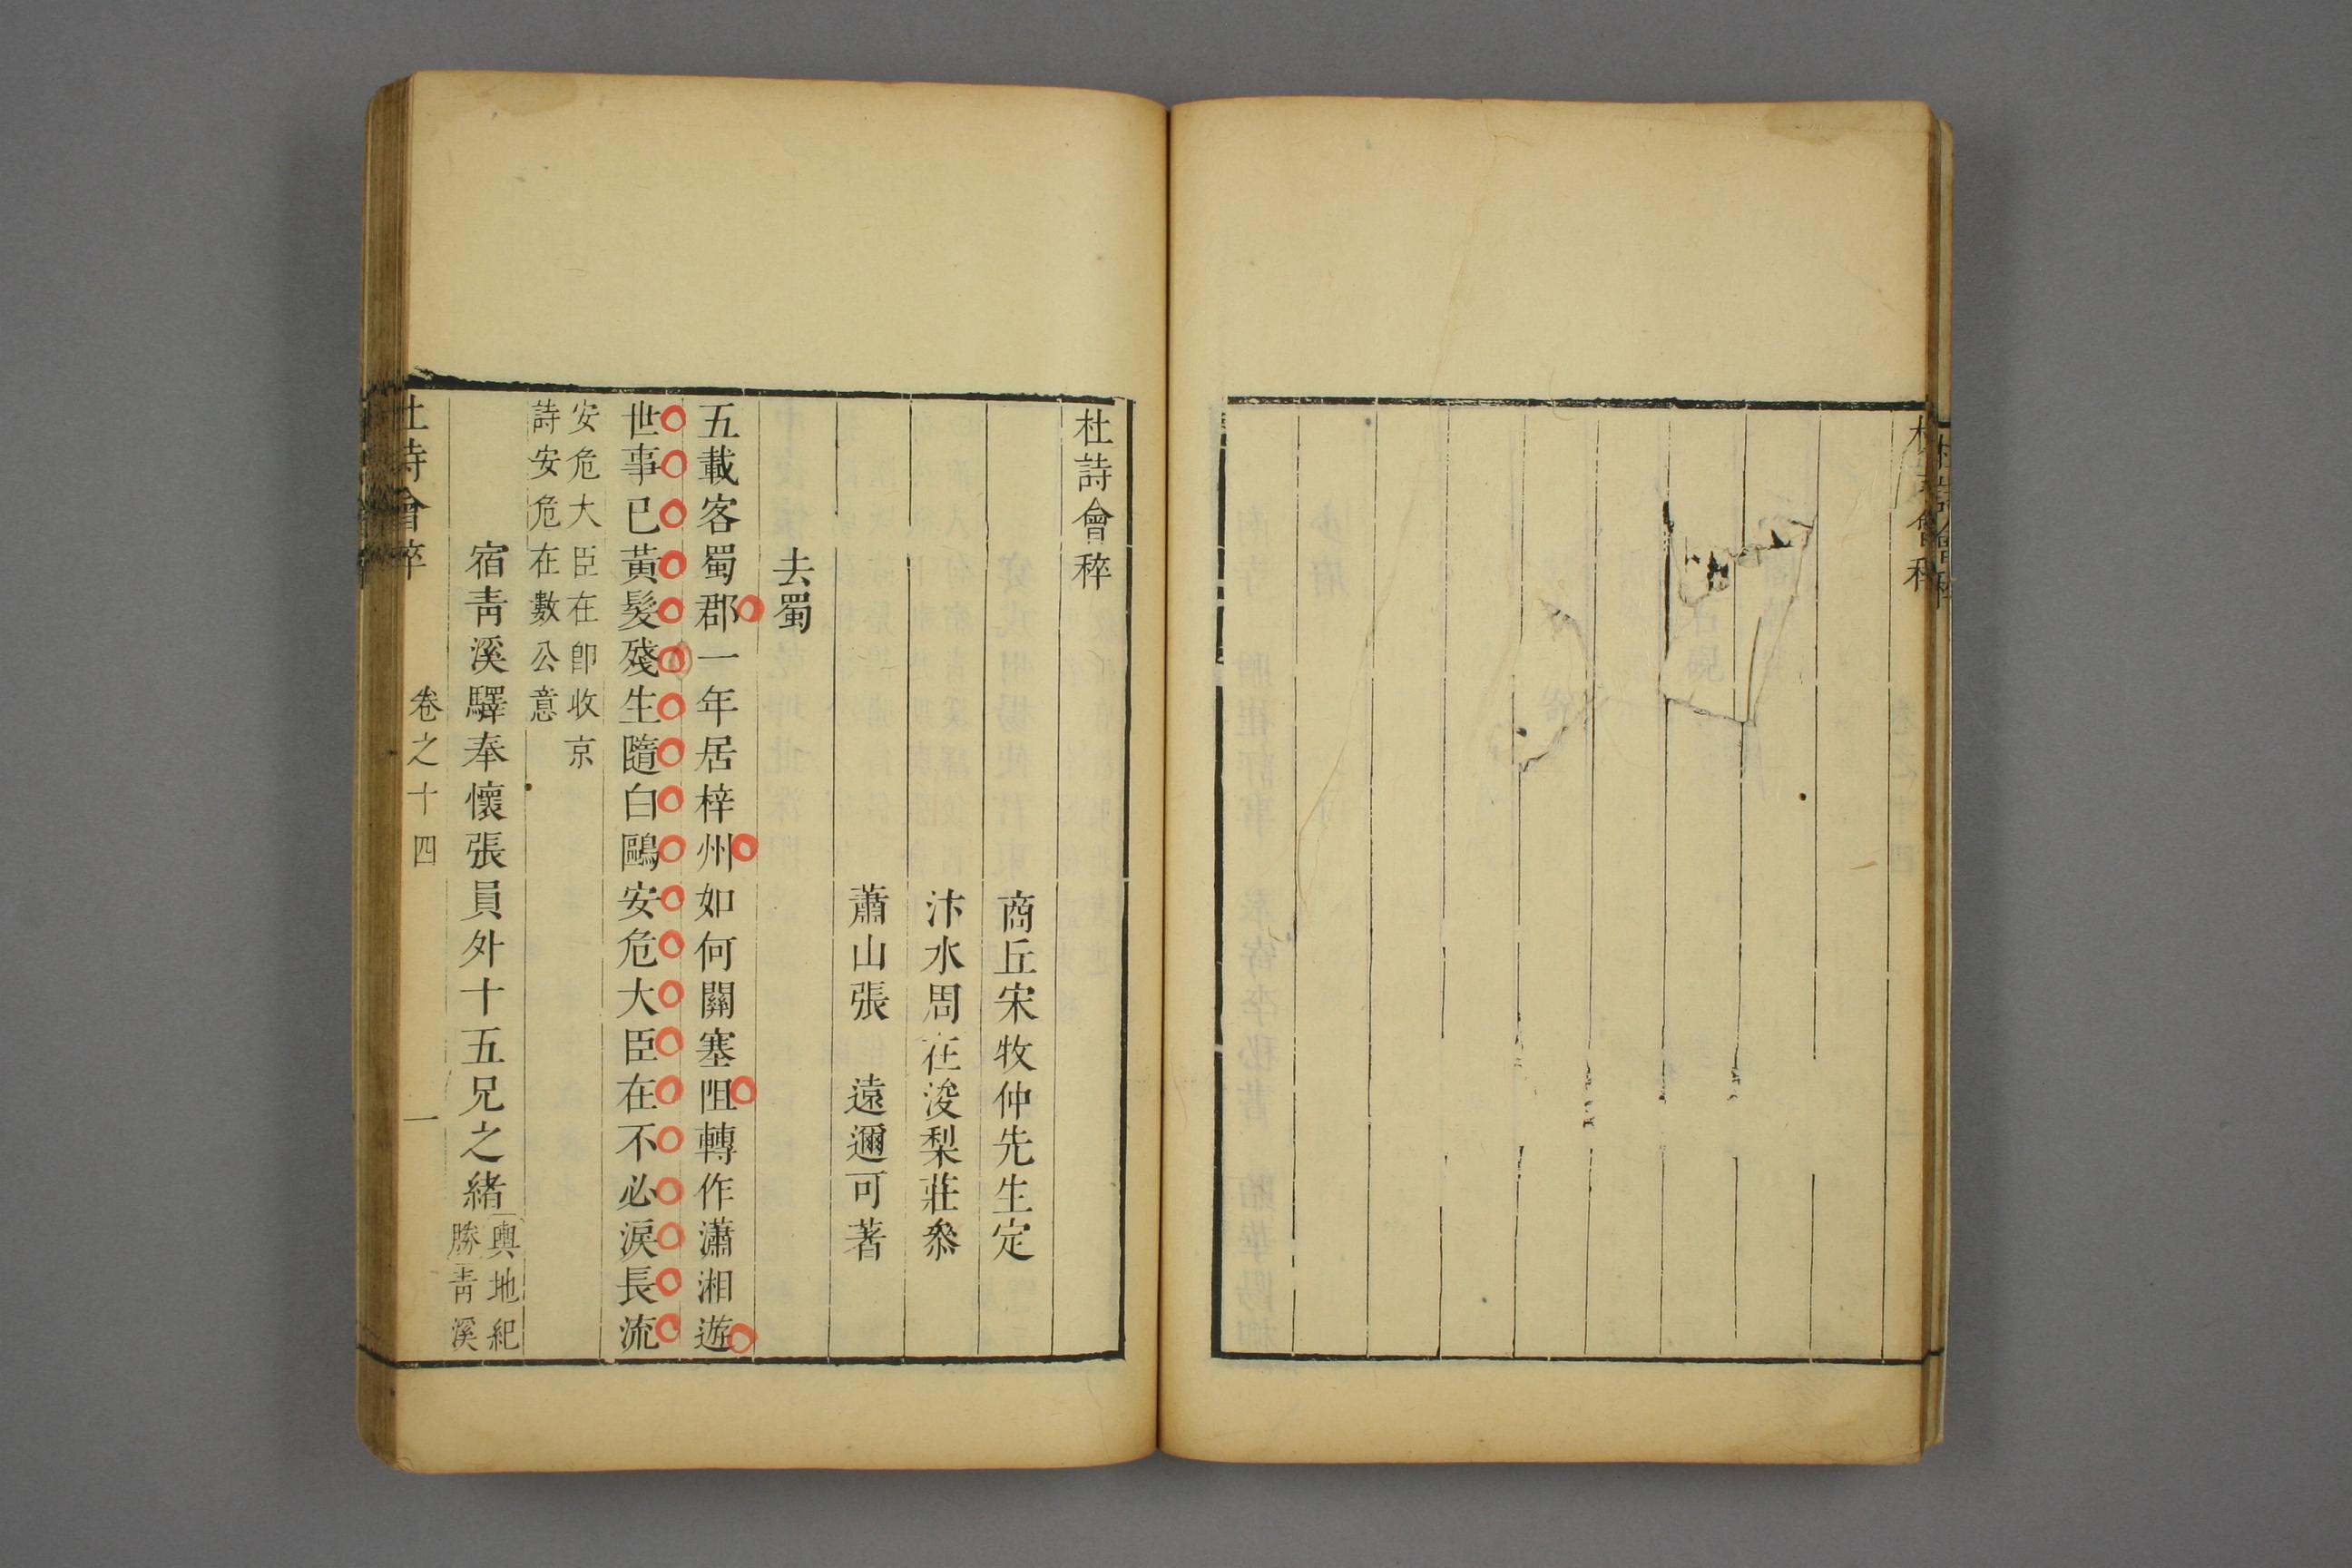 杜詩會稡
商丘宋牧仲先生定
汴水周在浚梨莊叅
蕭山張　遠邇可著
去蜀
五載客蜀郡一年居梓州如何關塞阻轉作瀟湘遊
世事已黃髮殘生隨白鷗安危大臣在不必淚長流
安危大臣在卽收京
詩安危在數公意
宿靑溪驛奉懷張員外十五兄之緒
輿地紀
勝靑溪
杜詩會稡
卷之十四
一